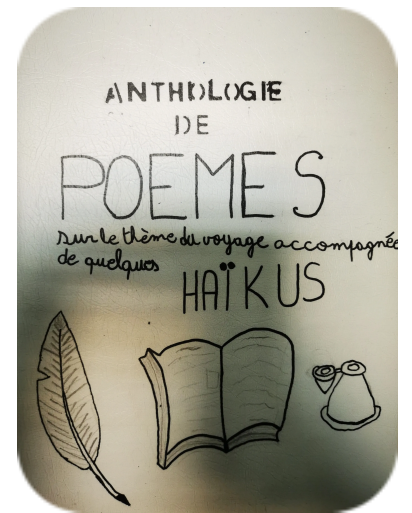 ANTHOLOGIE
DE
POEMES
sur le thème du voyage accompagnée
de quelques
HAÏKUS